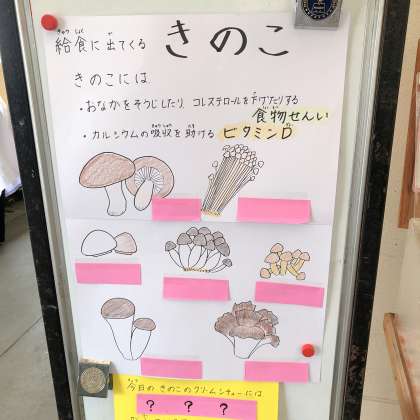 給食に出てくる きのこ
きのこには
・おなかをそうじしたり、コレステロールを下げたりする
食物せんい
・カルシウムの吸収を助ける ビタミンD
今日の きのこのクリームシチューには
? ? ?